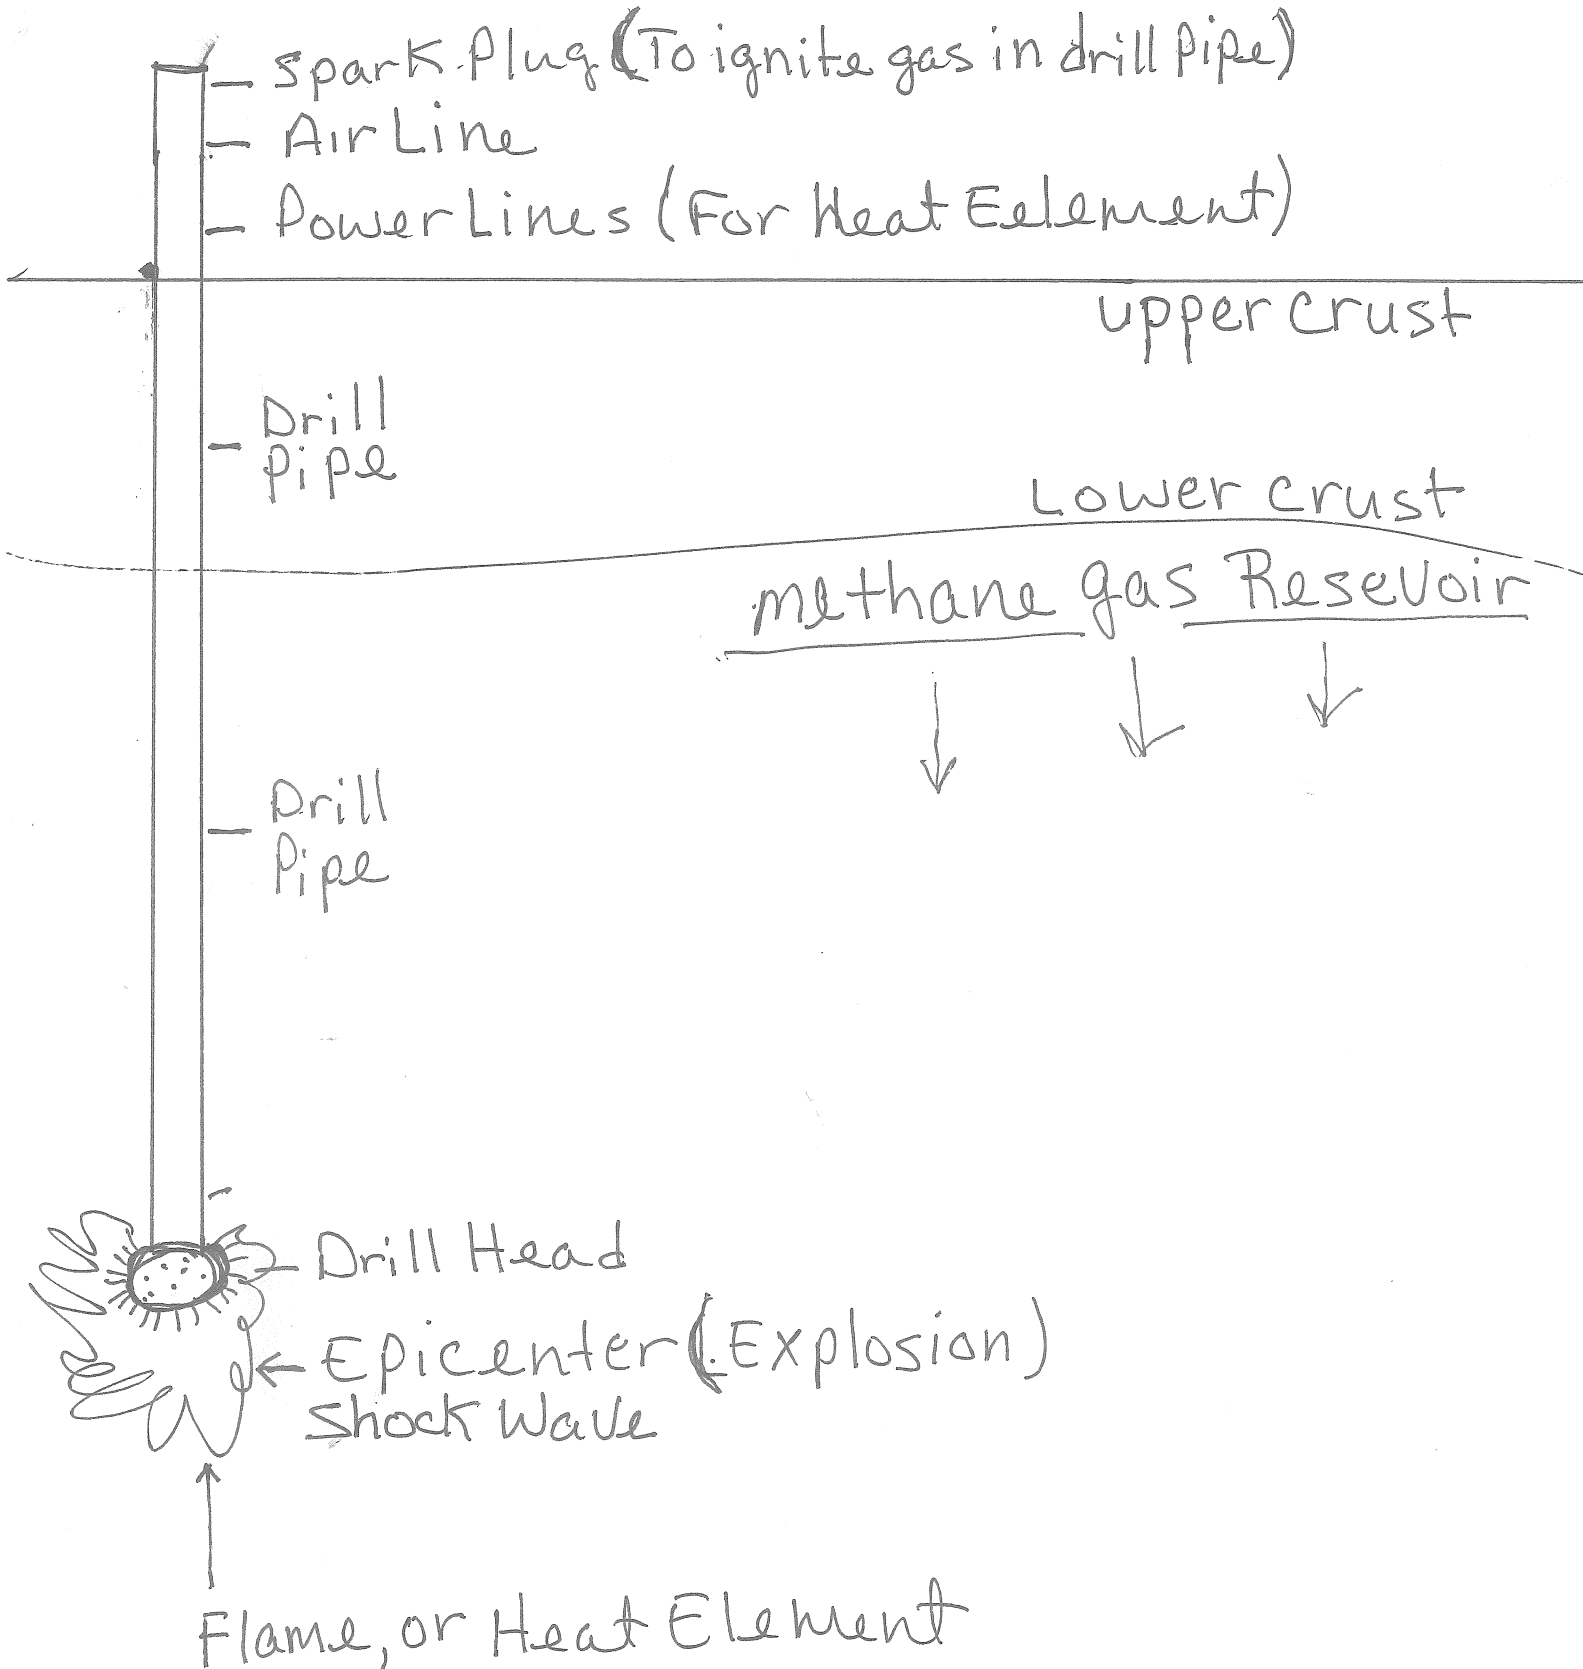 Spark Plug (To ignite gas in drill pipe)
Air Line
Power Lines (For Heat Eelement)
upper crust
Drill
Pipe
Lower crust
methane gas Resevoir
Drill
Pipe
Drill Head
Epicenter (Explosion)
Shock Wave
Flame, or Heat Element